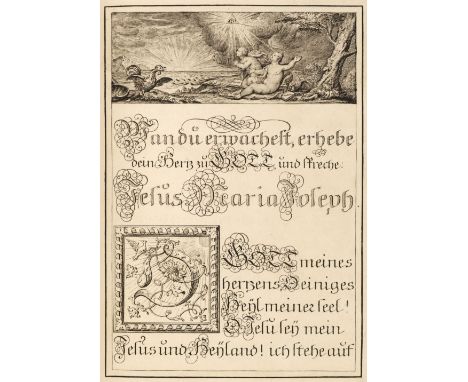 Wan du erwachest, erhebe
dein Hertz zu GOTT und spreche
Jesus Maria Joseph.
O GOTT meines
hertzens Deiniges
Heyl meiner seel!
O Jesu sey mein
Jesus und Heyland! ich stehe auf